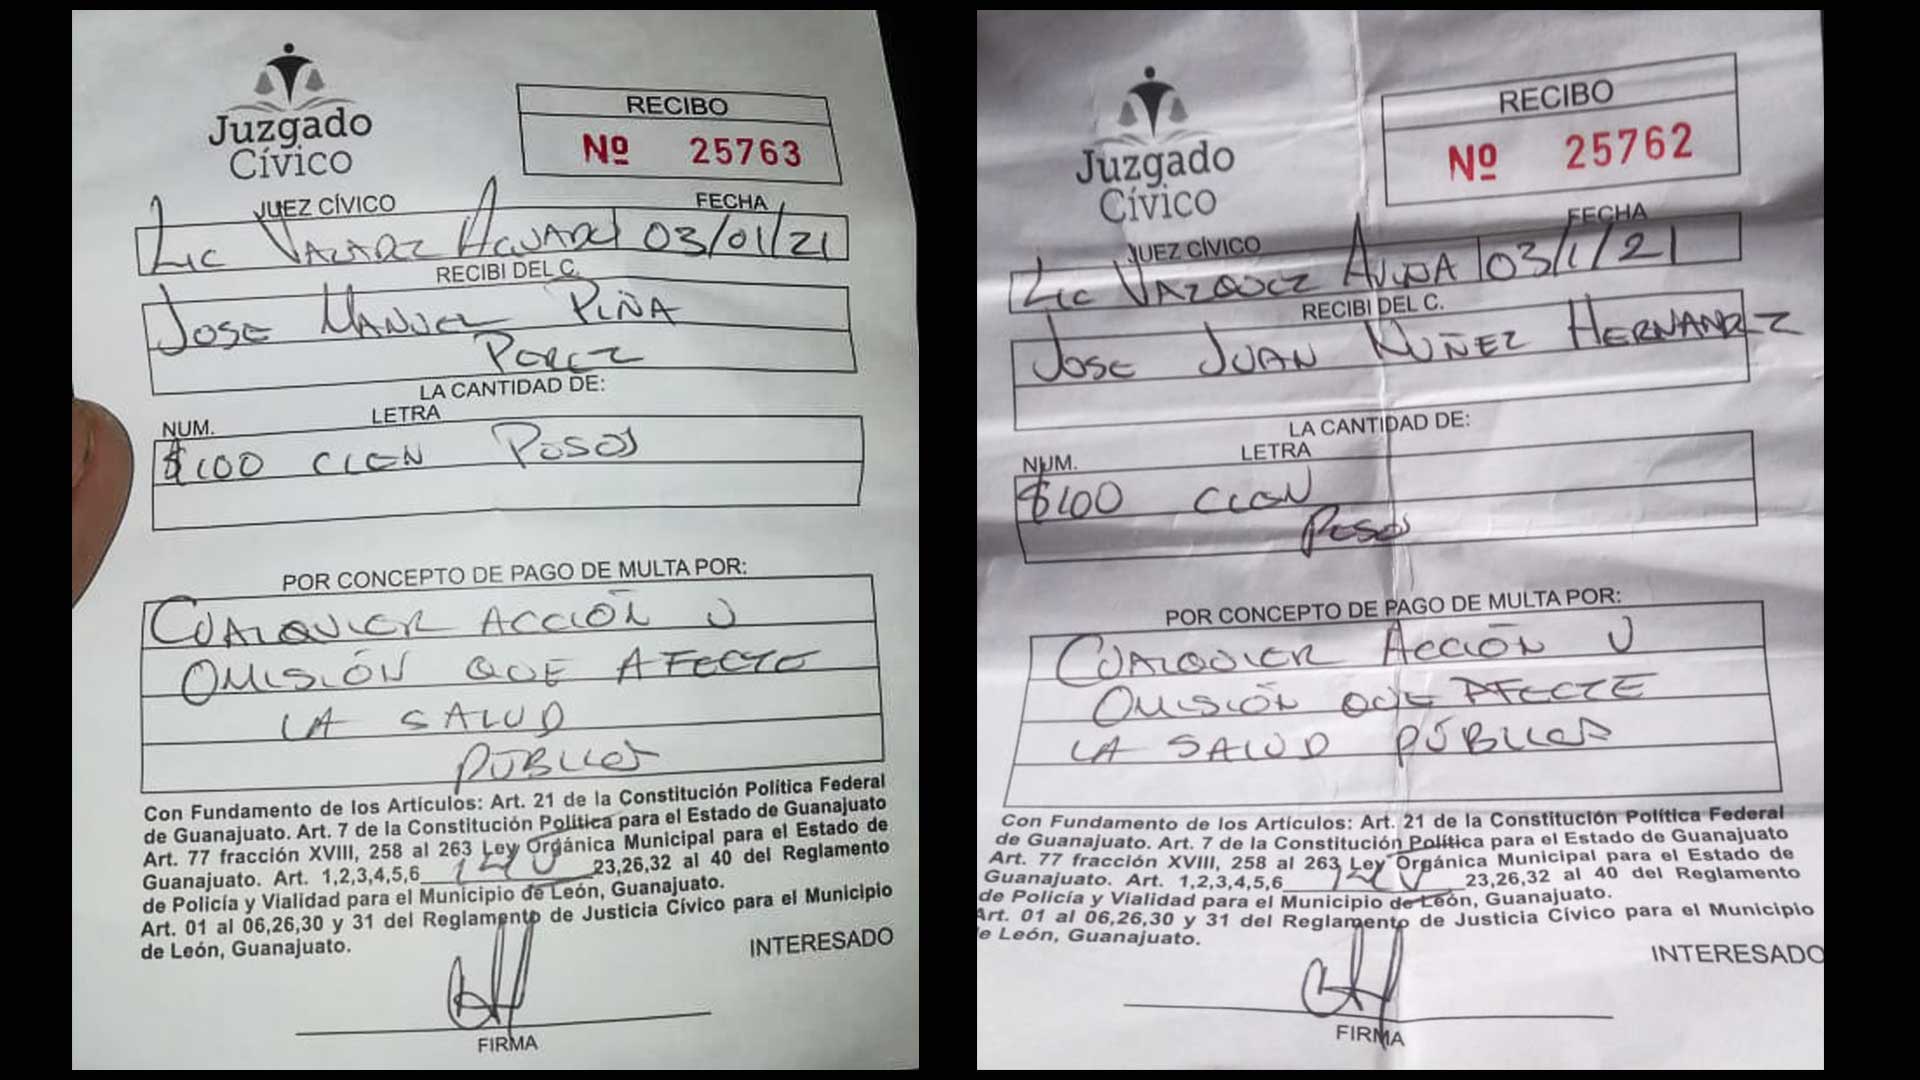 Juzgado
Cívico
RECIBO
Nº 25763
JUEZ CÍVICO FECHA
LIC 03/01/21
RECIBI DEL C.
JOSE MANUEL PIÑA
PEREZ
LA CANTIDAD DE:
NUM. LETRA
$100 CIEN PESOS
POR CONCEPTO DE PAGO DE MULTA POR:
CUALQUIER ACCIÓN U
OMISIÓN QUE AFECTE
LA SALUD
PÚBLICA
Con Fundamento de los Artículos: Art. 21 de la Constitución Política Federal
de Guanajuato. Art. 7 de la Constitución Política para el Estado de Guanajuato
Art. 77 fracción XVIII, 258 al 263 Ley Orgánica Municipal para el Estado de
Guanajuato. Art. 1,2,3,4,5,6 23,26,32 al 40 del Reglamento
de Policía y Vialidad para el Municipio de León, Guanajuato.
Art. 01 al 06,26,30 y 31 del Reglamento de Justicia Cívico para el Municipio
de León, Guanajuato.
INTERESADO
FIRMA
Juzgado
Cívico
RECIBO
Nº 25762
JUEZ CÍVICO FECHA
LIC VAZQUEZ 03/1/21
RECIBI DEL C.
JOSE JUAN NUÑEZ HERNANDEZ
LA CANTIDAD DE:
NUM. LETRA
$100 CIEN
PESOS
POR CONCEPTO DE PAGO DE MULTA POR:
CUALQUIER ACCIÓN U
OMISIÓN QUE AFECTE
LA SALUD PÚBLICA
Con Fundamento de los Artículos: Art. 21 de la Constitución Política Federal
de Guanajuato. Art. 7 de la Constitución Política para el Estado de Guanajuato
Art. 77 fracción XVIII, 258 al 263 Ley Orgánica Municipal para el Estado de
Guanajuato. Art. 1,2,3,4,5,6 23,26,32 al 40 del Reglamento
de Policía y Vialidad para el Municipio de León, Guanajuato.
Art. 01 al 06,26,30 y 31 del Reglamento de Justicia Cívico para el Municipio
e León, Guanajuato.
INTERESADO
FIRMA